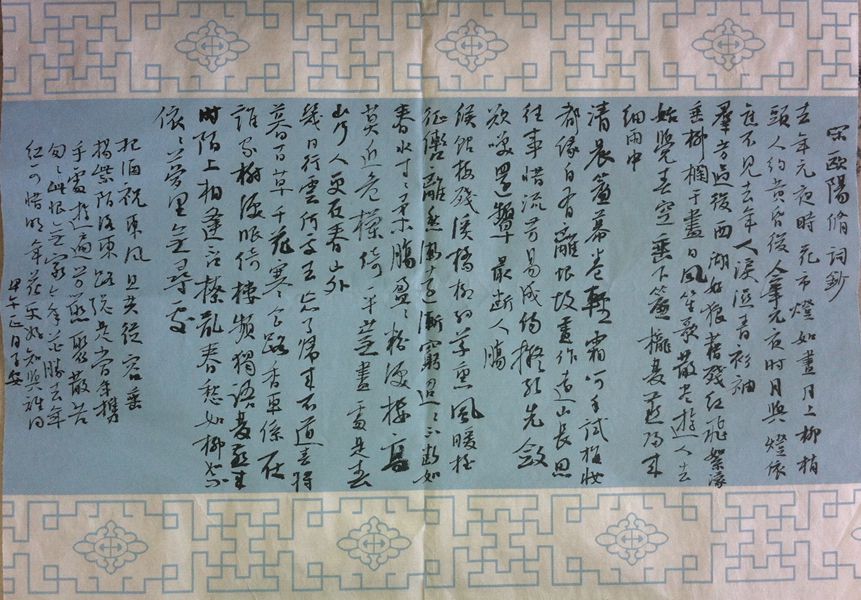 宋歐陽脩詞鈔
去年元夜時花市燈如晝月上柳梢
頭人約黃昏後今年元夜時月與燈依
舊不見去年人淚溼青衫袖
羣芳過後西湖好狼藉殘紅飛絮濛
垂柳欄干盡日風笙歌散盡遊人去
始覺春空垂下簾櫳雙燕歸來
細雨中
清晨簾幕卷輕霜呵手試梅妝
都緣自有離恨故畫作遠山長思
往事惜流芳易成傷擬歌先斂
欲笑還顰最斷人腸
候館梅殘溪橋柳細草薰風暖搖
征轡離愁漸遠漸窮迢々不斷如
春水寸々柔腸盈々粉淚樓高
莫近危欄倚平蕪盡處是春
山行人更在春山外
幾日行雲何處去忘了歸來不道春將
暮百草千花寒食路香車係在
誰家樹淚眼倚樓頻獨語雙燕來
時陌上相逢否撩亂春愁如柳絮
依々夢里無尋處
把酒祝東風且共從容垂
楊紫陌洛東路總是當年攜
手處遊遍芳叢聚散苦
匆々此恨無窮今年花勝去年
紅可惜明年花更好知與誰同
甲午正月子安